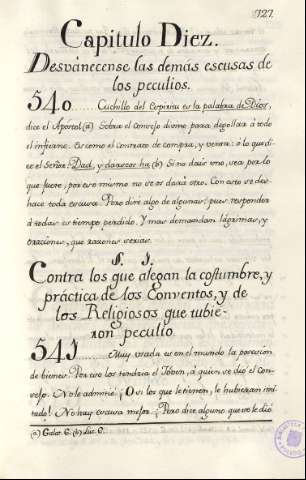 327.
Capitulo Diez.
Desvanecense las demás escusas de
los peculios.
540 Cuchillo del Espiritu es la palabra de Dios,
dice el Apostol (a) Sobra el consejo divino para degollar á todo
el infierno. Es como el contrato de compra, y venta: a lo que di-
ce el Señor: Dad, y daraseos ha (b) Si no dais uno, sea por lo
que fuere, por eso mismo no se os dará otro. Con esto se des-
hace toda escusa. Pero dire algo de algunas: pues responder
á todas es tiempo perdido. Y mas demandan lagrimas, y
oraciones, que razones serias.
§. I.
Contra los que alegan la costumbre, y
práctica de los Conventos, y de
los Religiosos que tubie-
ron peculio.
541 Muy usada es en el mundo la posesion
de bienes. Por eso los tendria el Joben, á quien se dió el Con-
sejo. No le admitió: ¡O si los que le tienen, le hubieran imi-
tado! No hay escusa mejor. ¿Pero dice alguno que se le dió
(a) Galat. 6. (b) Luc. 6.